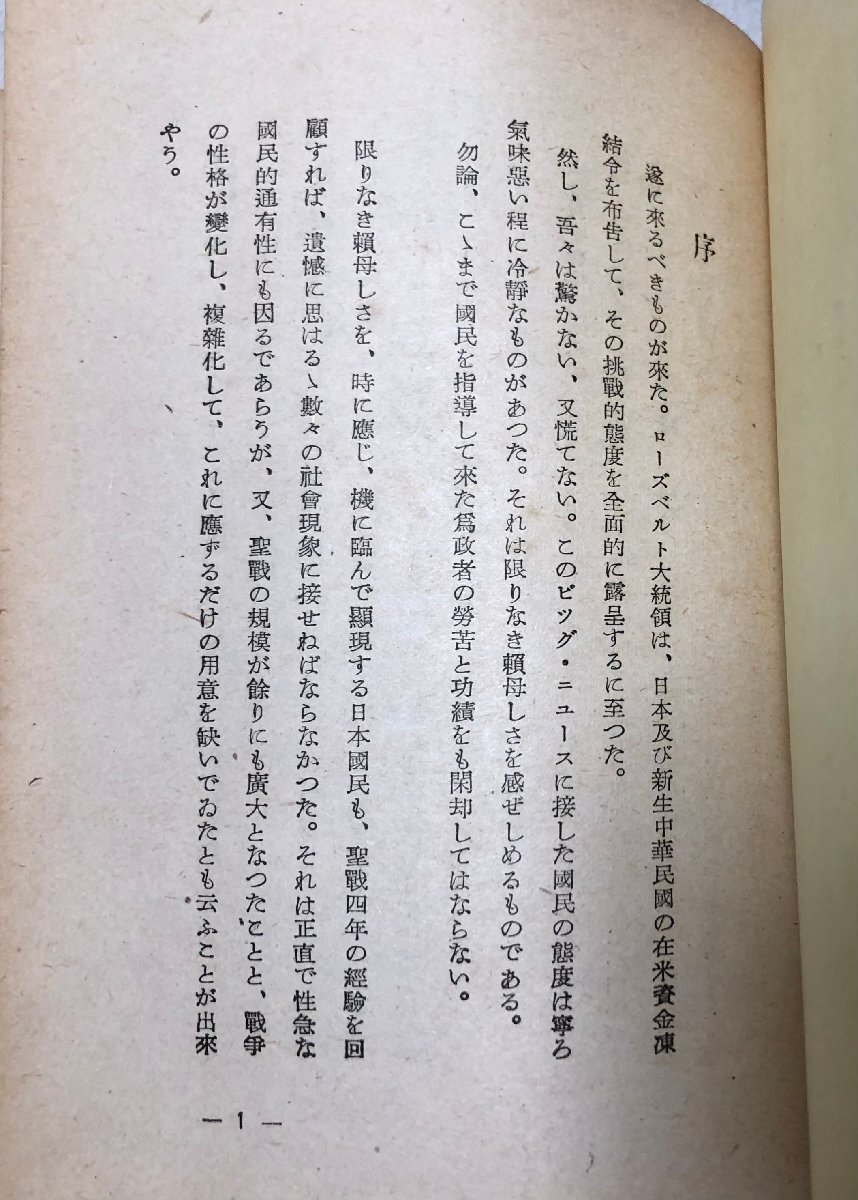 序
遂に來るべきものが來た。ローズベルト大統領は、日本及び新生中華民國の在米資金凍
結令を布告して、その挑戰的態度を全面的に露呈するに至つた。
然し、吾々は驚かない、又慌てない。このビツグ・ニユースに接した國民の態度は寧ろ
氣味惡い程に冷靜なものがあつた。それは限りなき賴母しさを感ぜしめるものである。
勿論、こゝまで國民を指導して來た爲政者の勞苦と功績をも閑却してはならない。
限りなき賴母しさを、時に應じ、機に臨んで顯現する日本國民も、聖戰四年の經驗を回
顧すれば、遺憾に思はるゝ數々の社會現象に接せねばならなかつた。それは正直で性急な
國民的通有性にも因るであらうが、又、聖戰の規模が餘りにも廣大となつたことと、戰爭
の性格が變化し、複雜化して、これに應ずるだけの用意を缺いでゐたとも云ふことが出來
やう。
— 1 —